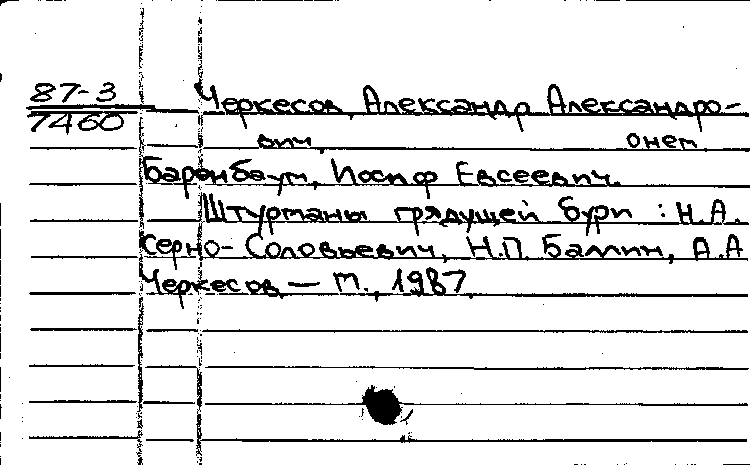 87-3
7460
Черкесов, Александр Александро-
вич,
о нем
Баренбаум, Иосиф Евсеевич.
Штурманы грядущей бури : Н.А.
Серно-Соловьевич, Н.П. Баллин, А.А
Черкесов — М., 1987.